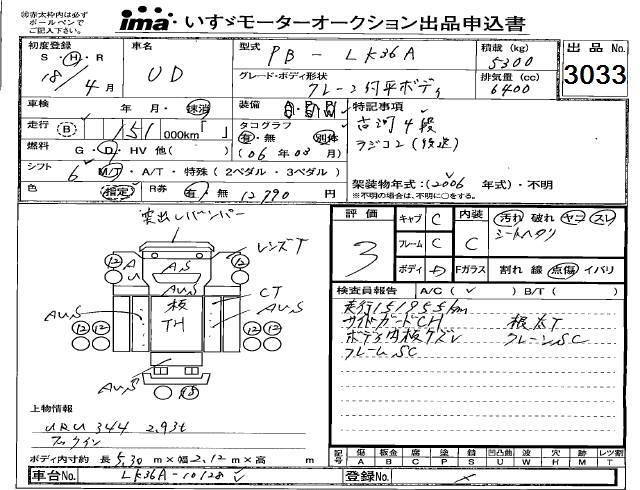 ㊟赤太枠内は必ず
ボールペンで
ご記入下さい。
ima いすゞモーターオークション出品申込書
初度登録 車名 型式 PB - LK36A 積載 (kg) 5300
S・H・R 18/4月 UD グレード・ボディ形状 クレーン付平ボディ 排気量 (cc) 6400
出品 No. 3033
車検 年・月・抹消 装備 特記事項
走行 B 151 000km タコグラフ 有・無 別体 古河4段
燃料 G・D・HV 他( ) (06年03月) ラジコン(後送)
シフト 6 M/T・A/T・特殊(2ペダル・3ペダル)
色 指定 R券 有・無 12790円 架装物年式:(2006 年式)・不明
※不明の場合は、不明に○をする。
評価 3 キャブ C 内装 C 汚れ 破れ ヤニ スレ
フレーム C シートヘタリ
ボディ D Fガラス 割れ 線 点傷 イバリ
突出しバンパー
レンズT
12 A A,S 12
Au,S
板 TH CT
Au,S Au,S
12 12 12 12
Au,S
検査員報告 A/C( ✓ ) B/T( )
実行151955km
サイドガードCH 根太T
ボディ内板ケズレ クレーンSC
フレームSC
上物情報
URU344 2.93t
フックイン
ボディ内寸約 長 5.30 m×幅 2.12 m×高 m
傷 板金 腐 塗 錆 凹凸曲 波 穴 跡 レツ割
A B C P S U W H M T
車台No. LK36A-10128 登録No.